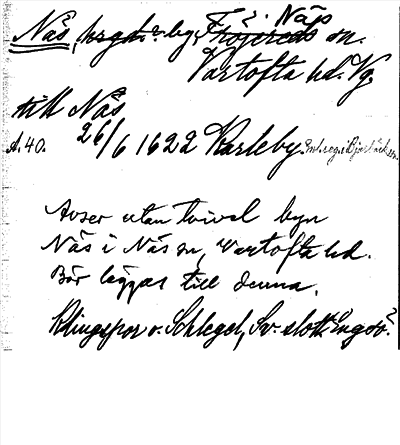 Näs, hrgd. o. by, Fröjereds sn.
i Näs
Vartofta hd. Vg.
till Näs
A. 40. 26/6 1622 Karleby.
Avser utan tvivel byn
Näs i Näs sn, Vartofta hd.
Bör läggas till denna.
Klingspor o. Schlegel, Sv. slott